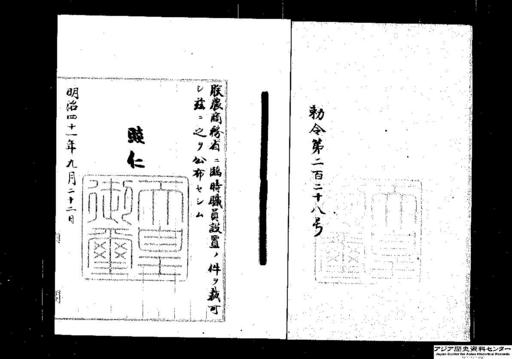 勅令第二百二十八号
朕農商務省ニ臨時職員設置ノ件ヲ裁可
シ茲ニ之ヲ公布セシム
睦仁
天皇
御璽
明治四十一年九月二十二日
アジア歴史資料センター
Japan Center for Asian Historical Records